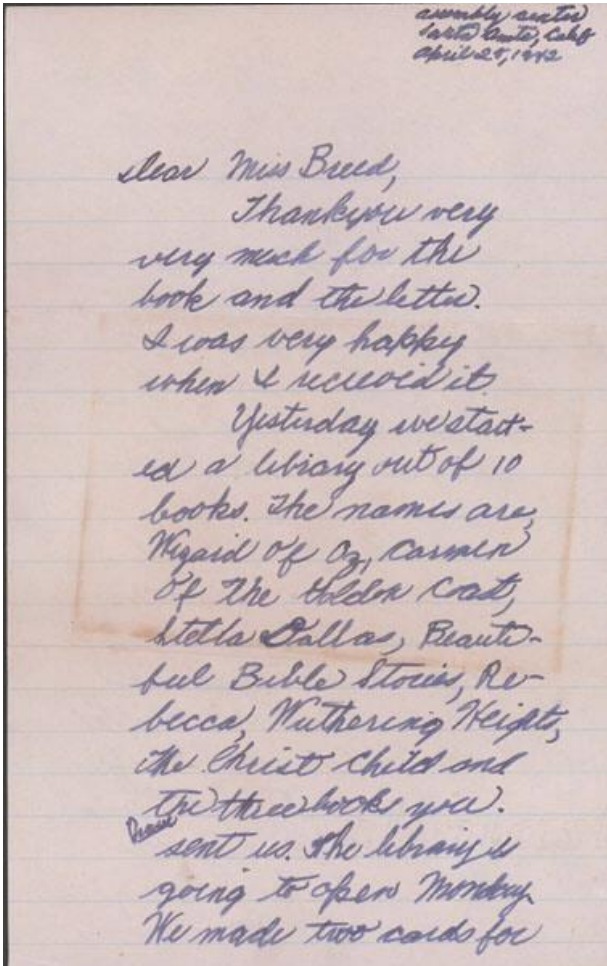 assembly center
Santa Anita, Calif
April 25, 1942
Dear Miss Breed,
Thankyou very
very much for the
book and the letter.
I was very happy
when I recieved it.
Yesterday we start-
ed a library out of 10
books. The names are,
Wizard of Oz, Carmen
Of The Golden Coast,
Stella Dallas, Beauti-
ful Bible Stories, Re-
becca, Wuthering Heights,
The Christ Child and
the three books you.
sent us. The library is
going to open Monday.
We made two cards for